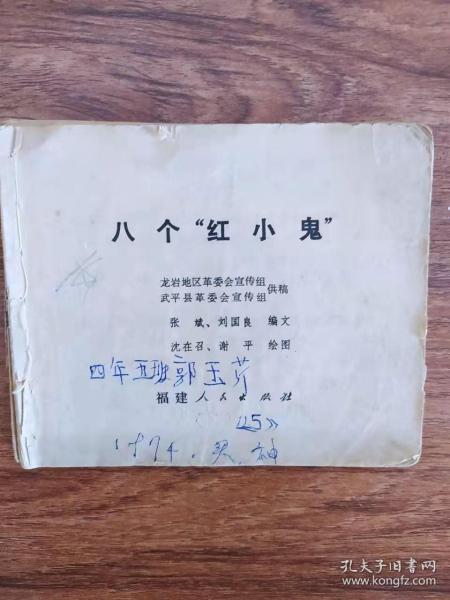 八个“红小鬼”
龙岩地区革委会宣传组
武平县革委会宣传组 供稿
张斌、刘国良 编文
沈在召、谢平 绘图
四年五班郭玉芹
福建人民出版社
《5》
1974.
孔夫子旧书网
www.kongfz.com